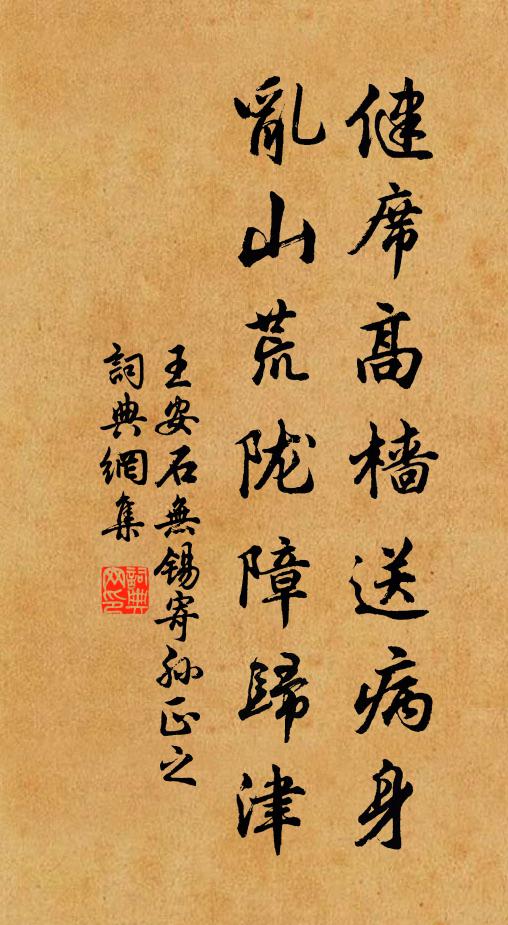 健席高樯送病身
亂山荒陇障歸津
王安石無锡寄孙正之
詞典網集
詞典
网印